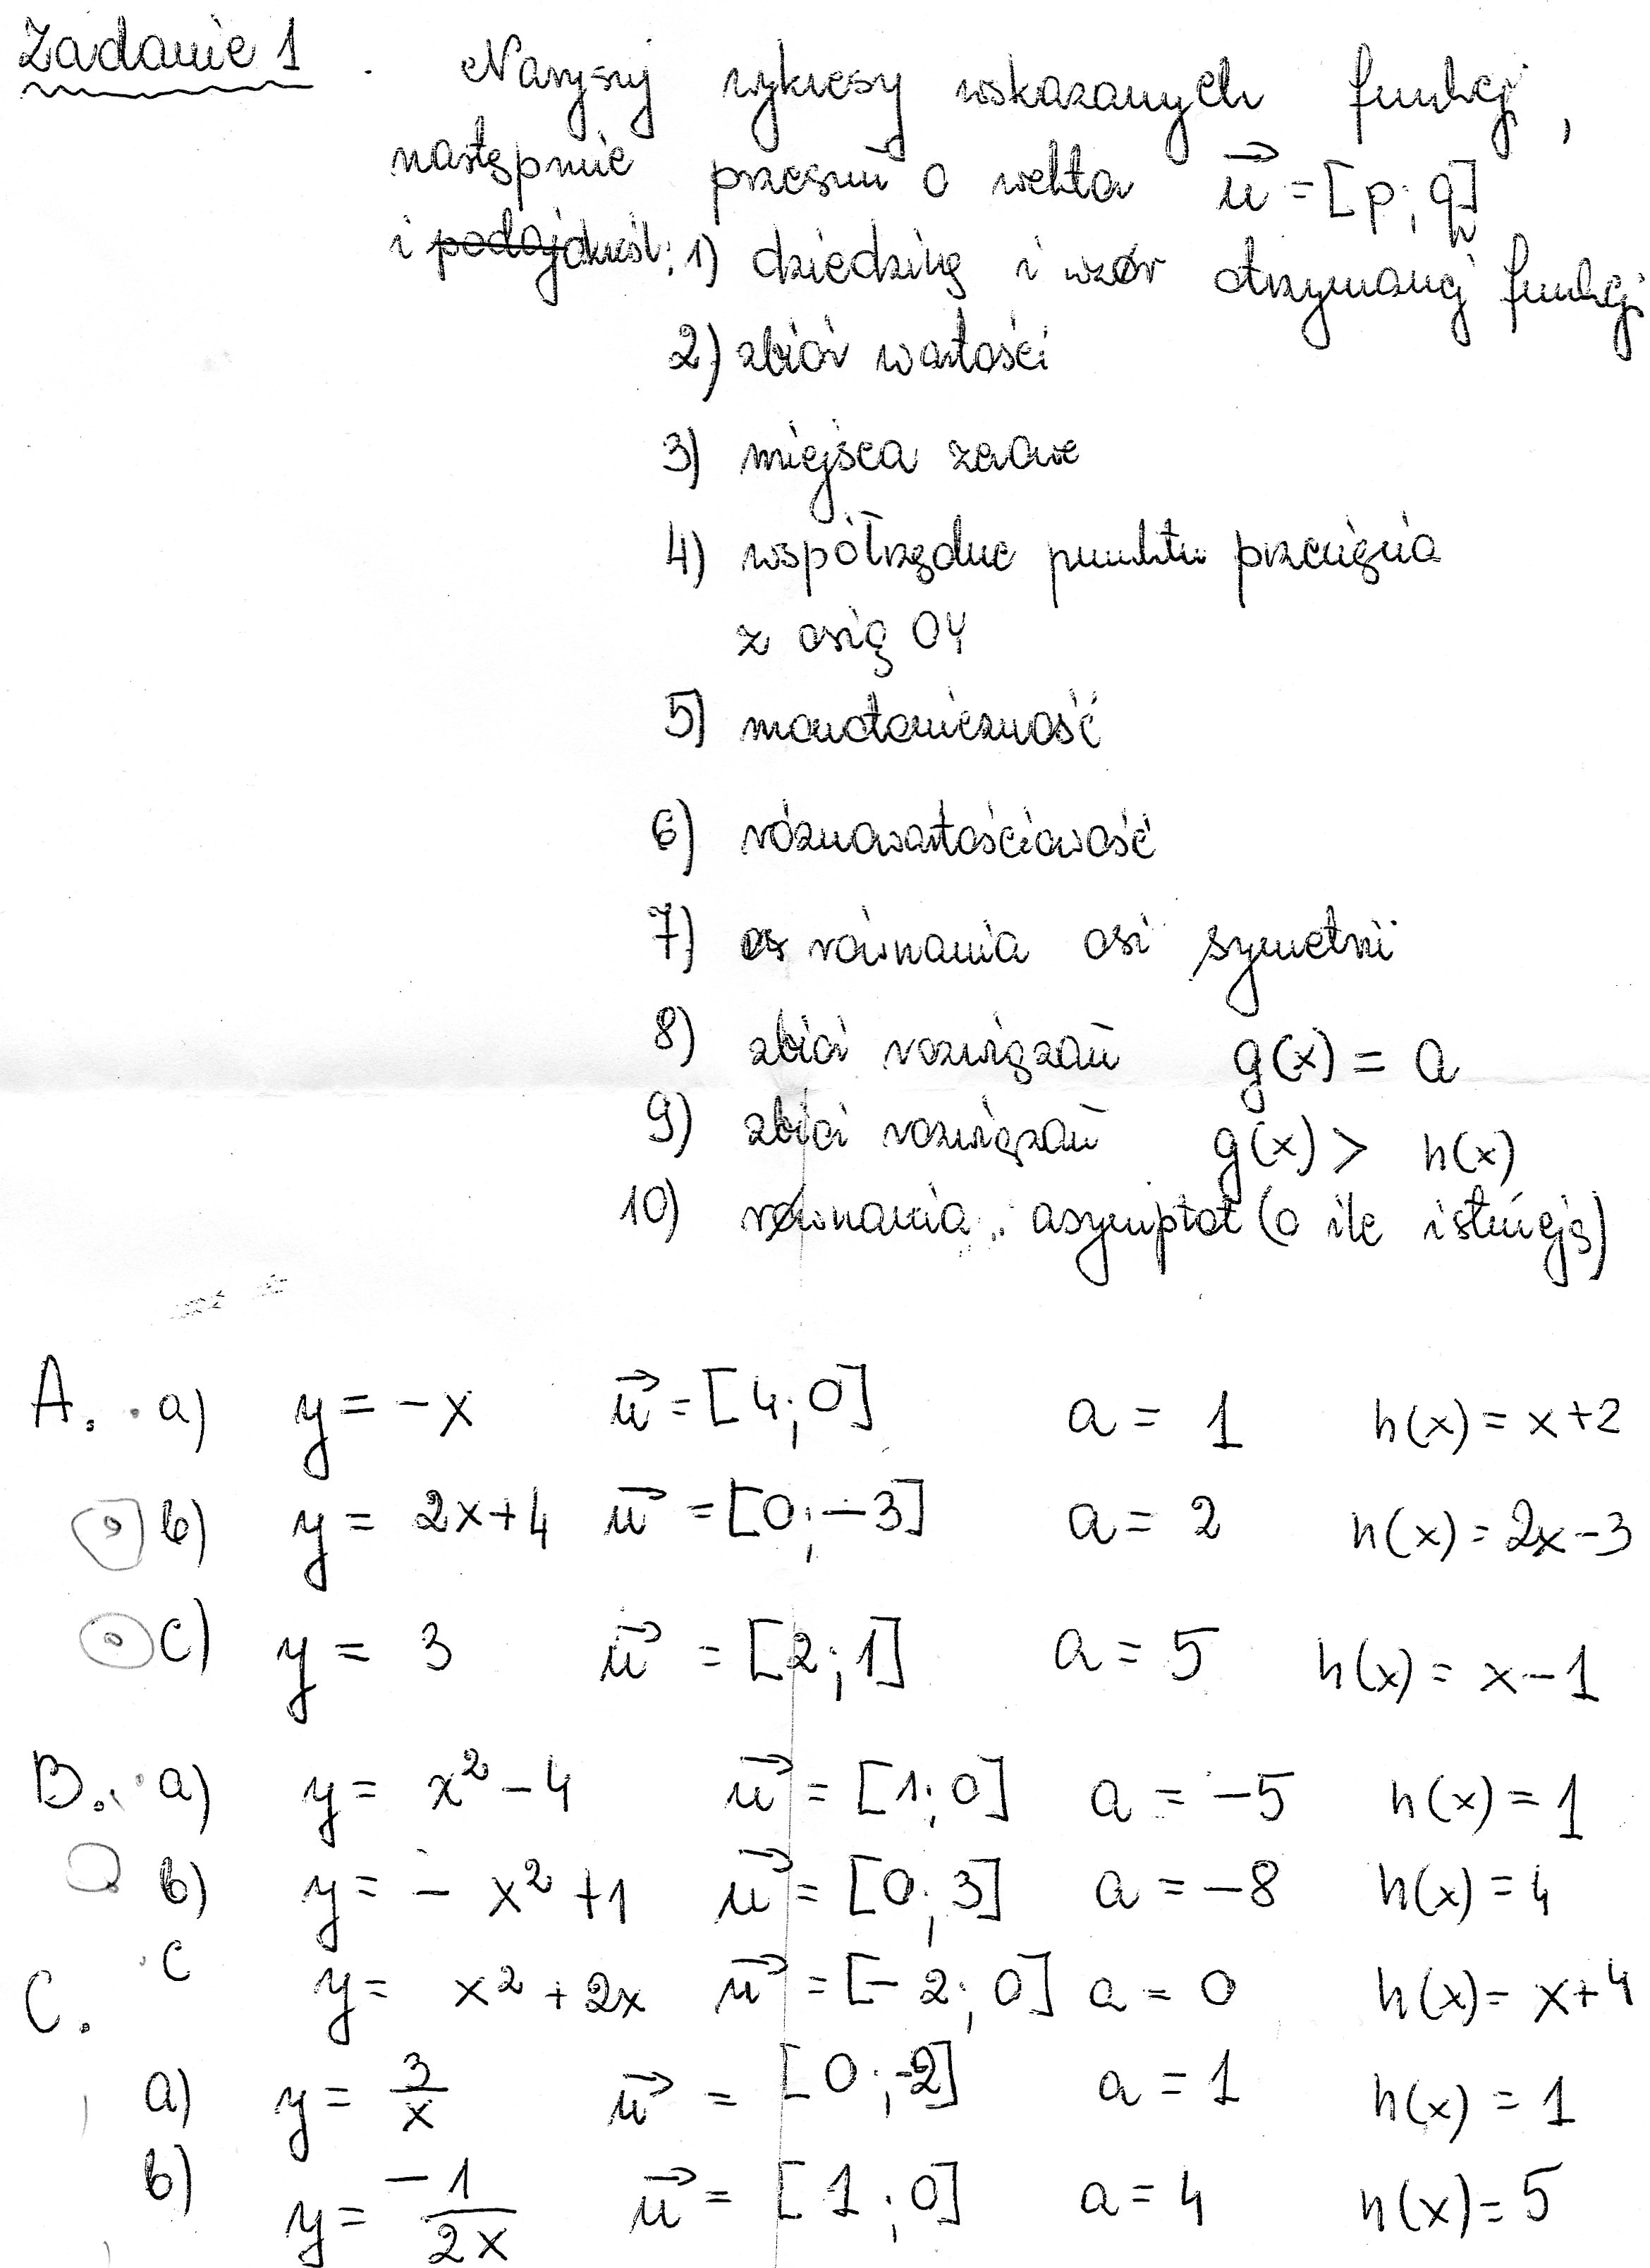 Zadanie 1. Narysuj wykresy wskazanych funkcji,
następnie przesuń o wekto \vec{u} = [p; q]
i podaj określ: 1) dziedzinę i wzór otrzymanej funkcji
2) zbiór wartości
3) miejsca zerowe
4) współrzędne punktu przecięcia
z osią OY
5) monotoniczność
6) różnowartościowość
7) równania osi symetrii
8) zbiór rozwiązań g(x) = a
9) zbiór rozwiązań g(x) > h(x)
10) równania asymptot (o ile istnieją)
A. a) y = -x \vec{u} = [4; 0] a = 1 h(x) = x+2
b) y = 2x+4 \vec{u} = [0; -3] a = 2 h(x) = 2x-3
c) y = 3 \vec{u} = [2; 1] a = 5 h(x) = x-1
B. a) y = x² - 4 \vec{u} = [1; 0] a = -5 h(x) = 1
b) y = - x² + 1 \vec{u} = [0; 3] a = -8 h(x) = 4
c y = x² + 2x \vec{u} = [-2; 0] a = 0 h(x) = x+4
C.
a) y = 3/x \vec{u} = [0; -2] a = 1 h(x) = 1
b) y = -1/2x \vec{u} = [1; 0] a = 4 h(x) = 5